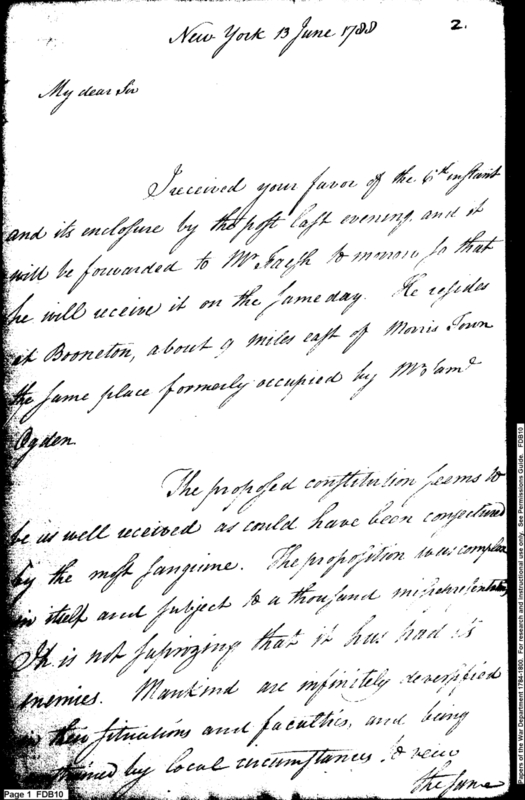 New York 13 June 1788
2.
My dear Sir
I received your favor of the 6th instant
and its enclosure by the post last evening and it
will be forwarded to Mr Faesh to morrow so that
he will receive it on the same day. He resides
at Booneton, about 9 miles east of Morris Town
the same place formerly occupied by Mr Saml
Ogden
The proposed constitution seems to
be as well received as could have been conjectured
by the most sanguine. The proposition was complex
in itself and subject to a thousand misrepresentations
It is not suprizing that it has had its
enemies. Mankind are infinitely deversified
in their situations and faculties, and being
by local circumstances to view
the same
Page 1 FDB10
Papers of the War Department 1784-1800. For research and instructional use only. See Permissions Guide. FDB10